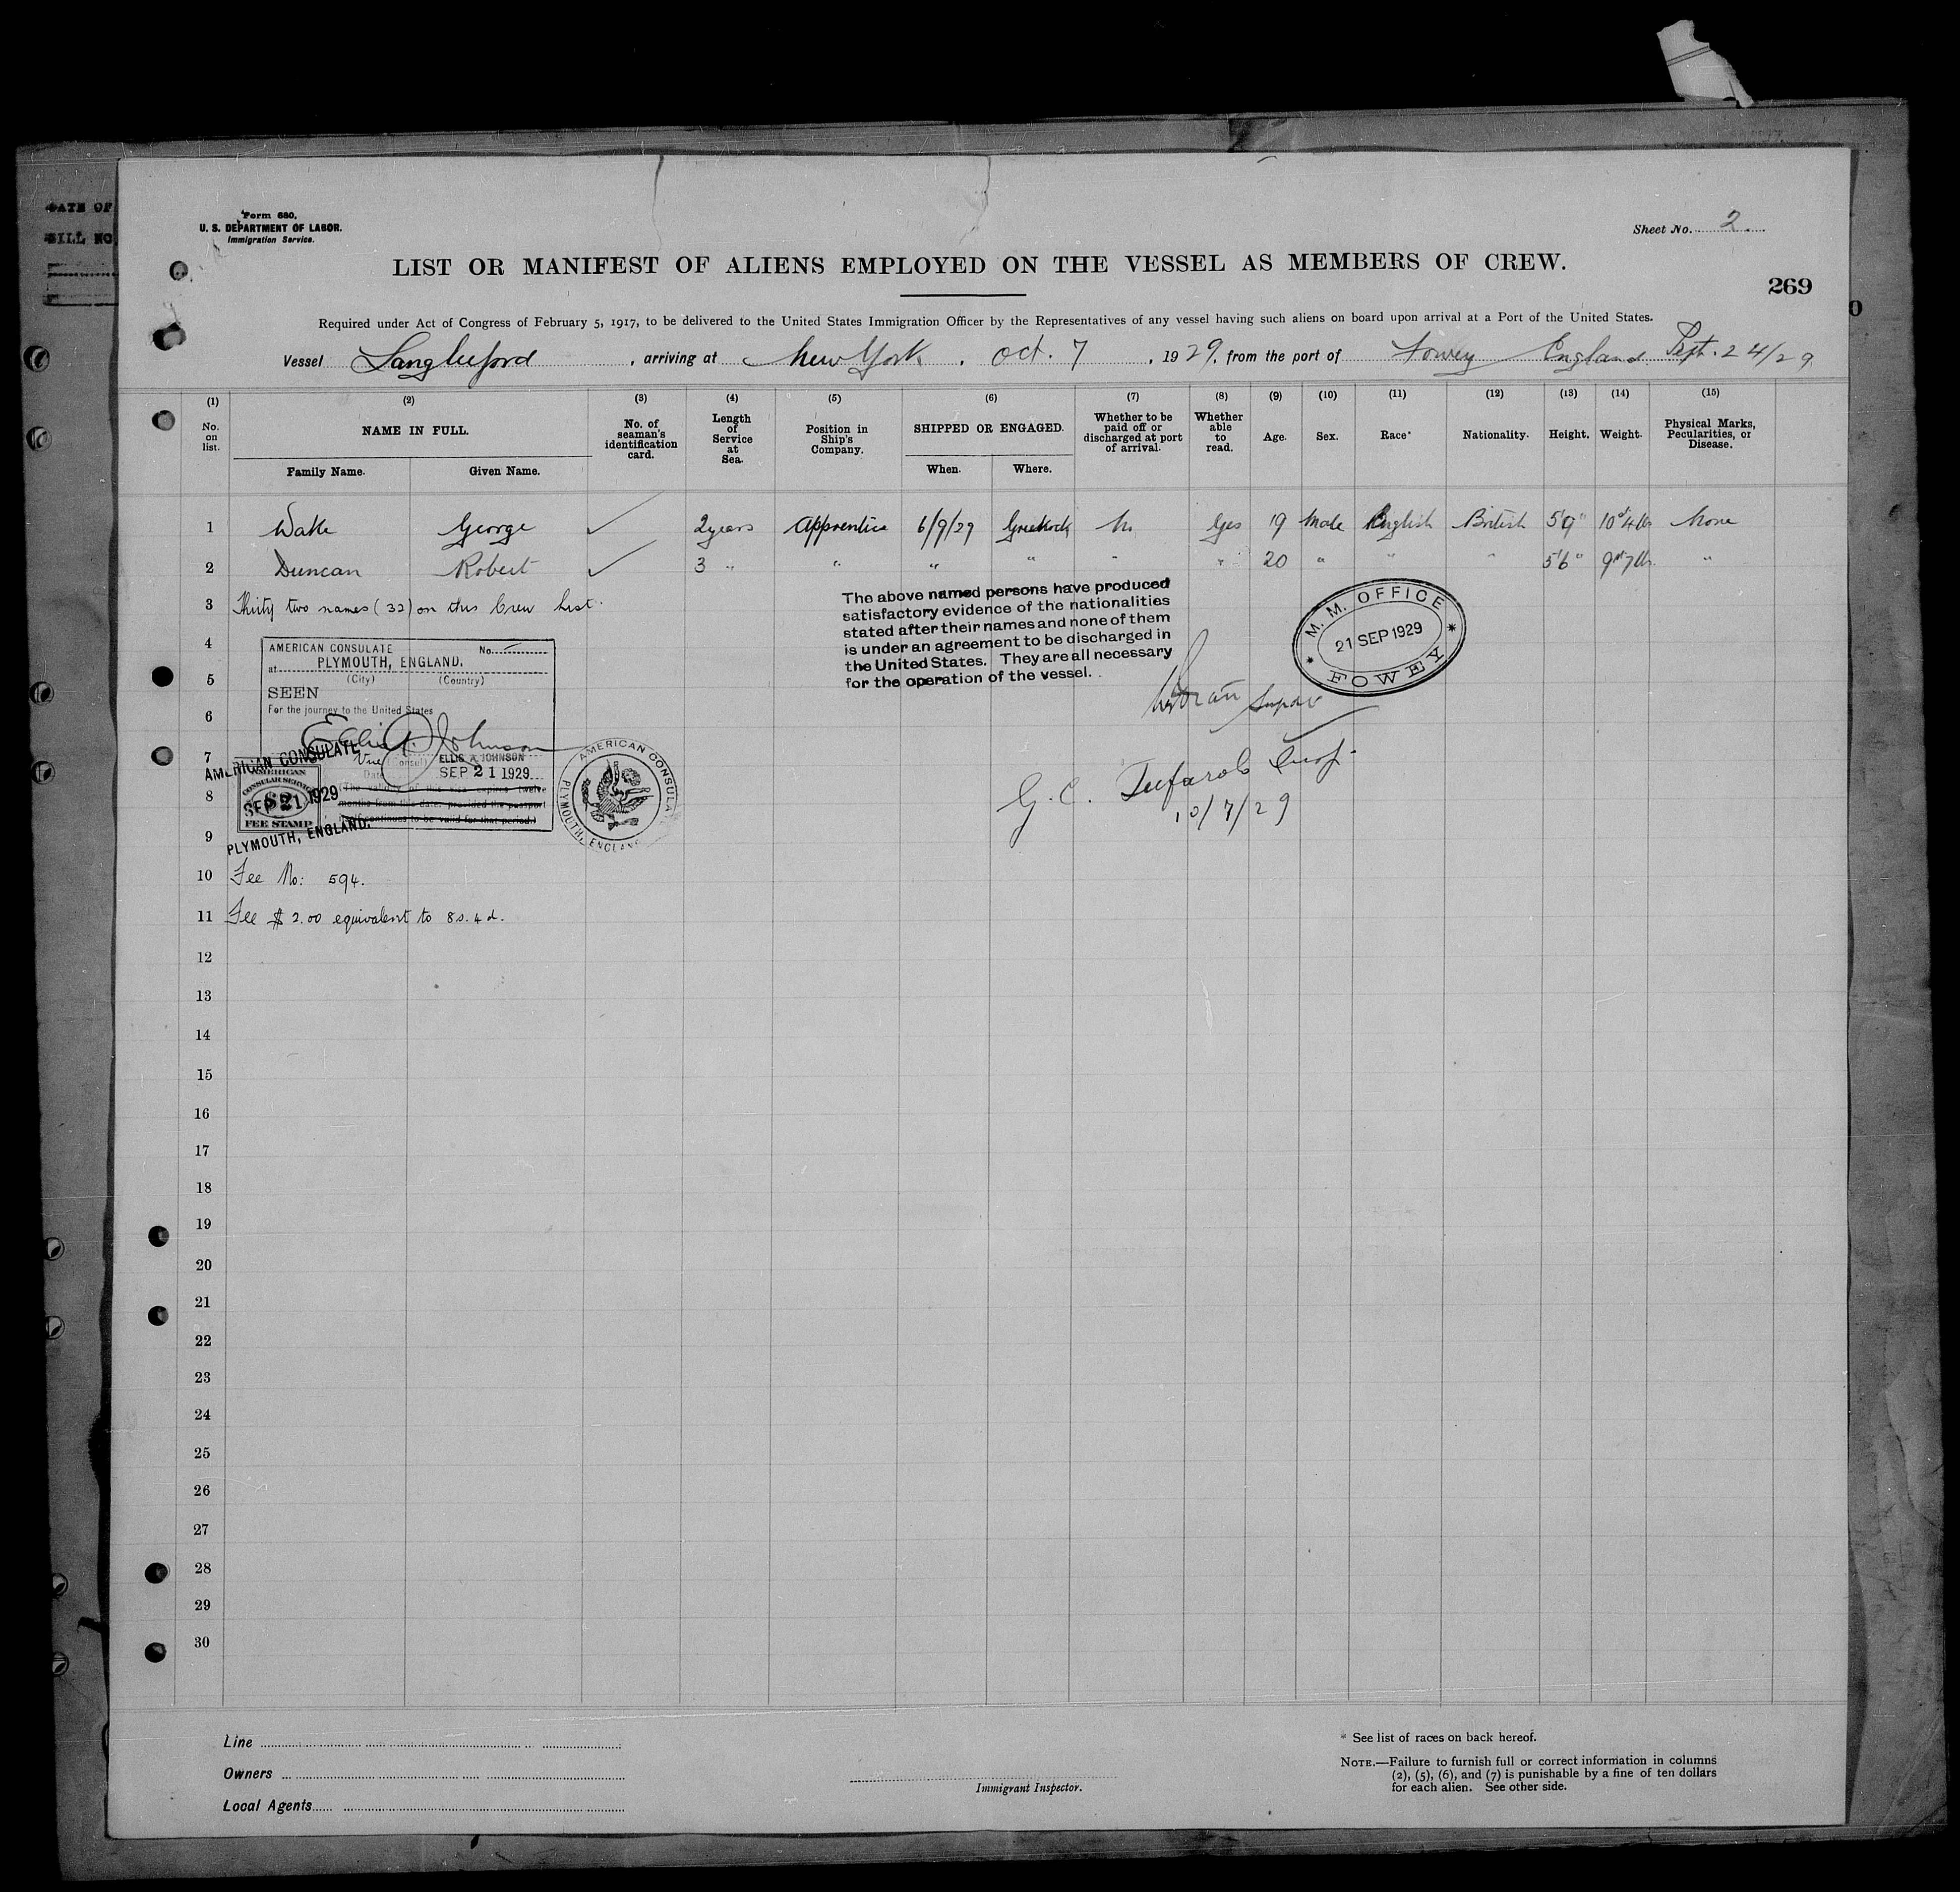 DATE OF
BILL NO
Form 680,
U. S. DEPARTMENT OF LABOR.
Immigration Service.
Sheet No. 2.
LIST OR MANIFEST OF ALIENS EMPLOYED ON THE VESSEL AS MEMBERS OF CREW.
269
Required under Act of Congress of February 5, 1917, to be delivered to the United States Immigration Officer by the Representatives of any vessel having such aliens on board upon arrival at a Port of the United States.
Vessel Langleeford, arriving at New York. Oct. 7, 1929, from the port of Fowey England Sept. 24/29
(1) (2) (3) (4) (5) (6) (7) (8) (9) (10) (11) (12) (13) (14) (15)
No. on list. NAME IN FULL. No. of seaman's identification card. Length of Service at Sea. Position in Ship's Company. SHIPPED OR ENGAGED. Whether to be paid off or discharged at port of arrival. Whether able to read. Age. Sex. Race* Nationality. Height. Weight. Physical Marks, Pecularities, or Disease.
Family Name. Given Name. When. Where.
1 George ✓ 2 years Apprentice 6/9/29 Yes 19 Male English British 5'9" None
2 Duncan Robert ✓ 3 " " " " " " 20 " " " 5'6" "
3 Thirty two names (32) on this Crew List.
4
5
6
7
8
9
The above named persons have produced
satisfactory evidence of the nationalities
stated after their names and none of them
is under an agreement to be discharged in
the United States. They are all necessary
for the operation of the vessel.
M. M. OFFICE
21 SEP 1929
FOWEY
AMERICAN CONSULATE No.
at PLYMOUTH, ENGLAND.
(City) (Country)
SEEN
For the journey to the United States
Ellis A. Johnson
Vice (Consul) ELLIS A. JOHNSON
Date SEP 21 1929
(The validity of this visa expires twelve
months from this date, provided the passport
continues to be valid for that period.)
AMERICAN CONSULATE
SEP 21 1929
PLYMOUTH, ENGLAND.
AMERICAN
CONSULAR SERVICE
$2
FEE STAMP
AMERICAN CONSULATE
PLYMOUTH, ENGLAND
G. C.
10/7/29
10 Fee No: 594.
11 Fee $ 2.00 equivalent to 8s. 4d.
12
13
14
15
16
17
18
19
20
21
22
23
24
25
26
27
28
29
30
Line
Owners
Local Agents
Immigrant Inspector.
* See list of races on back hereof.
NOTE.—Failure to furnish full or correct information in columns
(2), (5), (6), and (7) is punishable by a fine of ten dollars
for each alien. See other side.